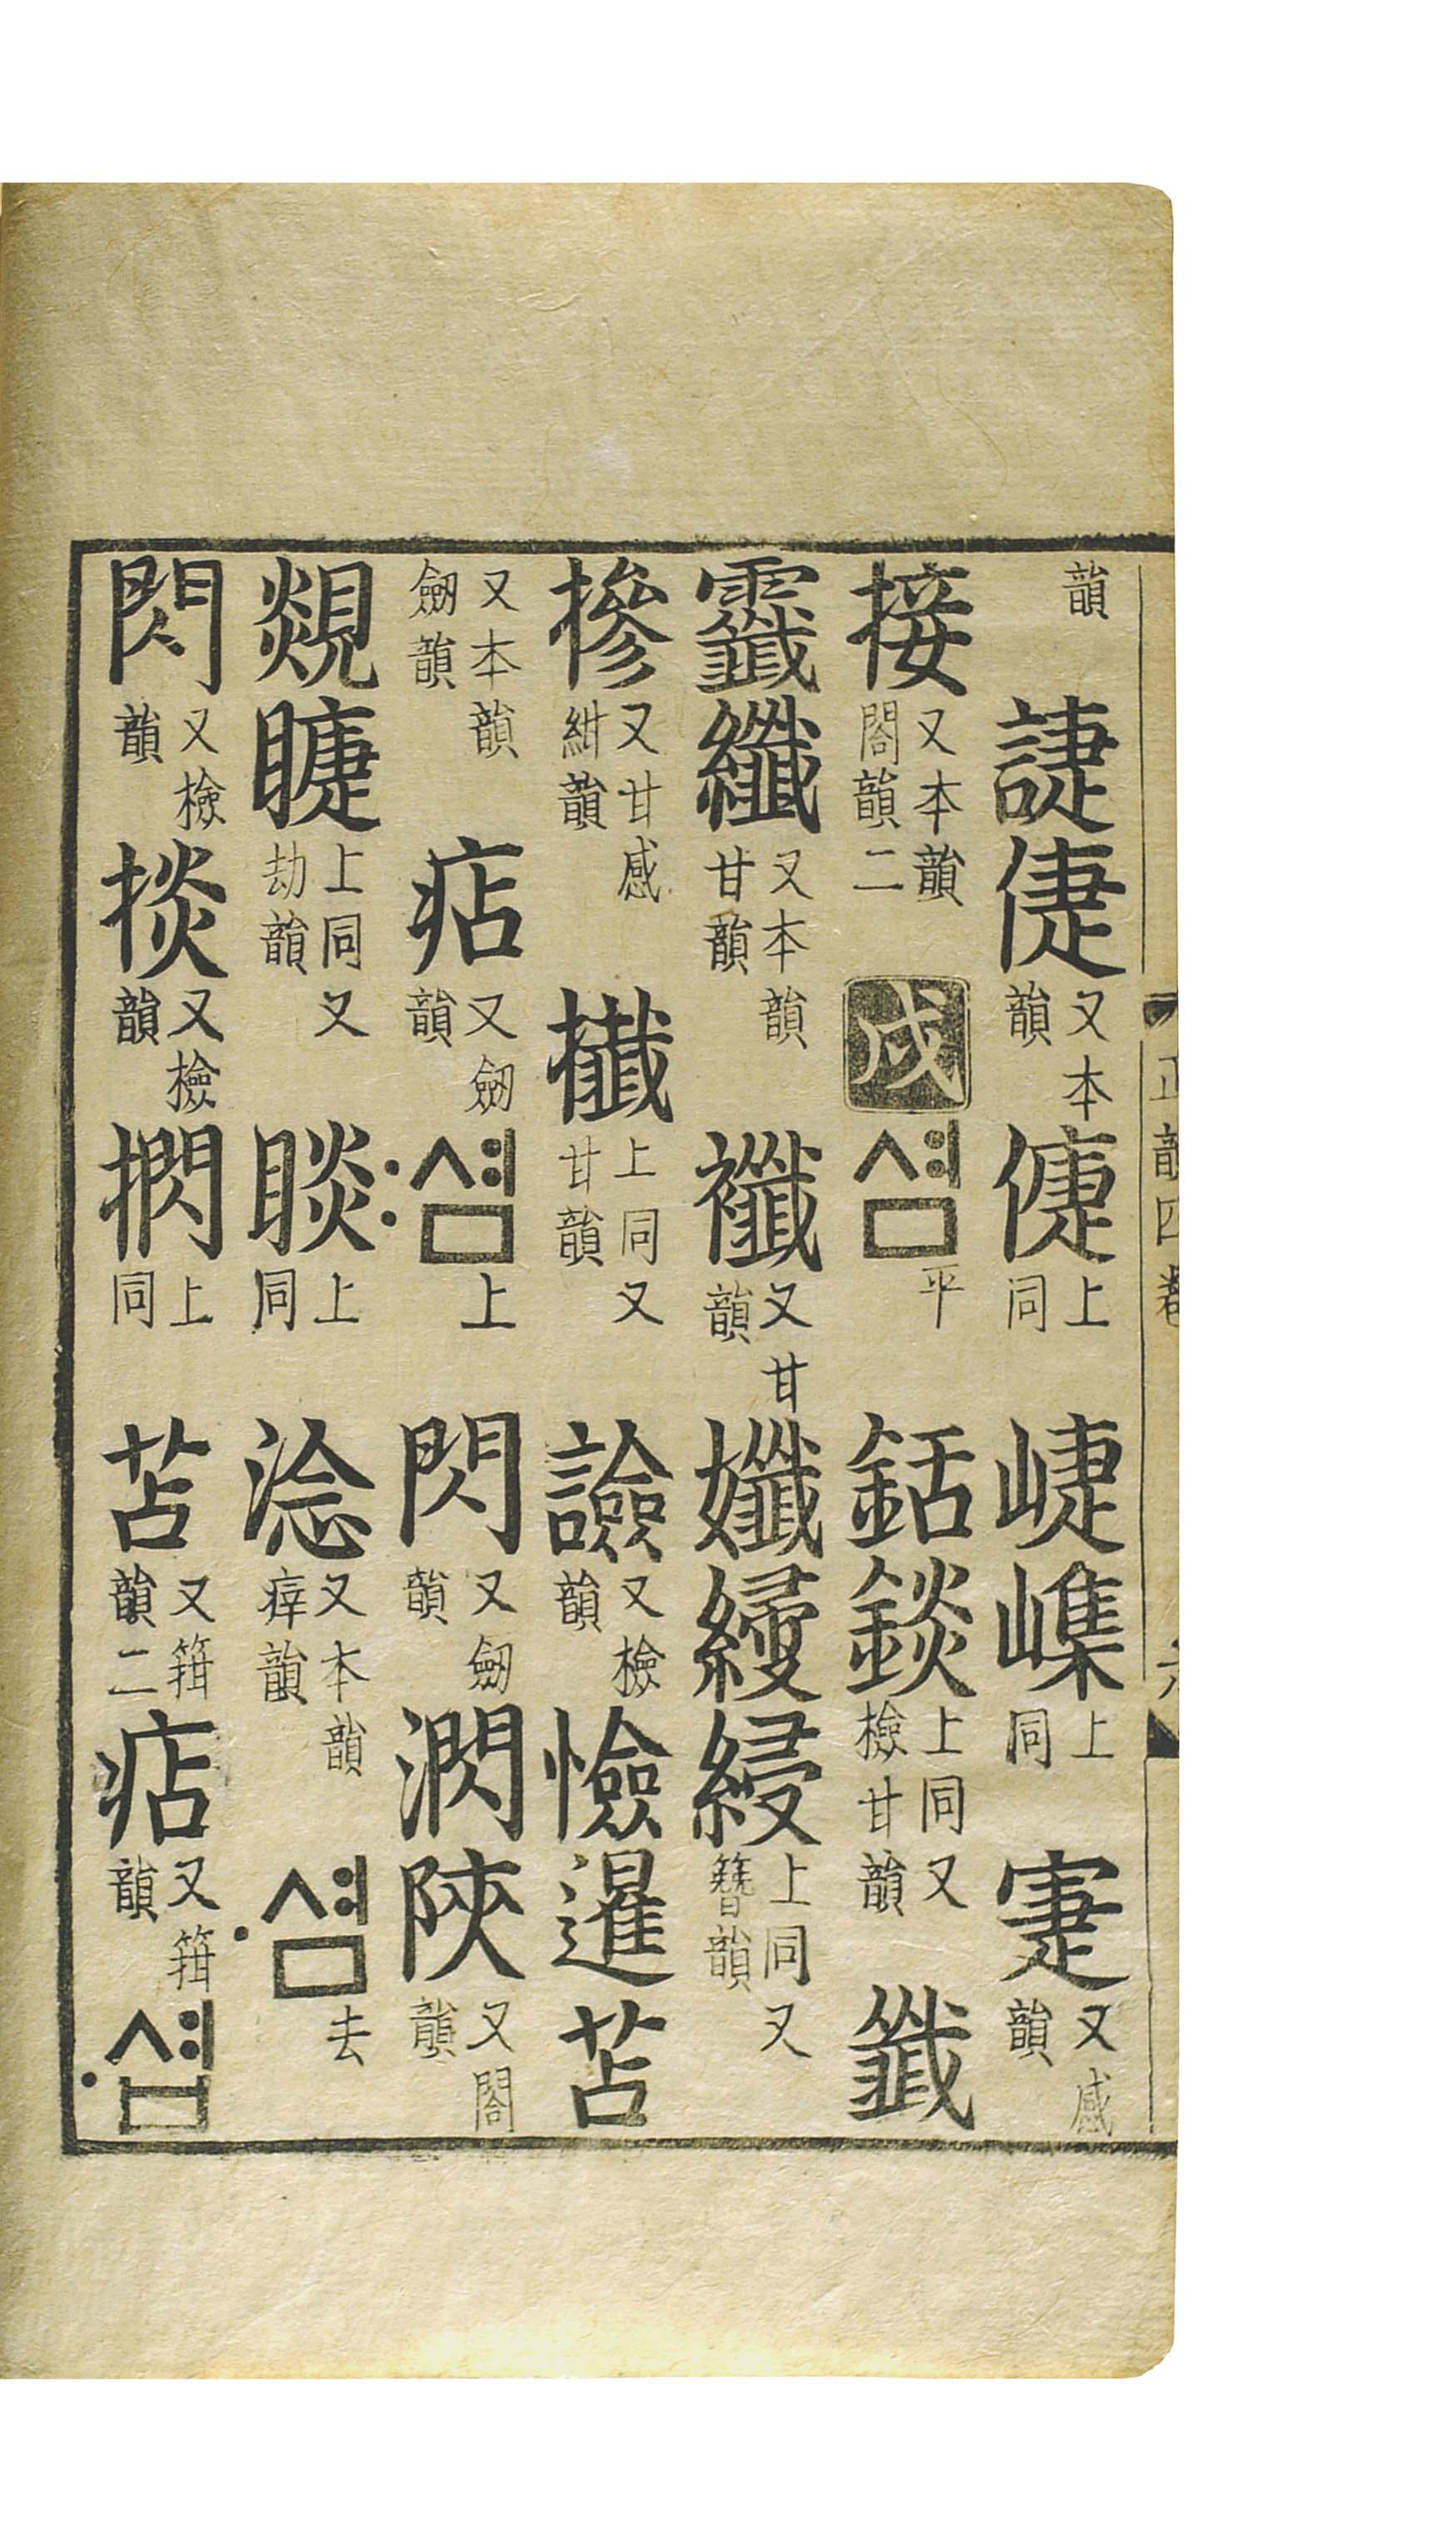 韻 誱倢又本韻㨗上同 崨嶫上同 寁又感韻
接又本韻閤韻二 戌 셤平 銛錟上同又檢甘韻 籤
韱纖又本韻甘韻 襳又甘韻 孅縵綅上同又簪韻
摻又甘感紺韻 攕上同又甘韻 譣又檢韻 憸暹苫
又本韻劒韻 痁又劒韻 :셤上 閃又劒韻 潤陝又閤韻
覢睫上同又劫韻 睒上同 淰又本韻瘁韻 ·셤去
閃又檢韻 掞又檢韻 㨛上同 苫又箝韻二 痁又箝韻 ·셥
正韻四卷